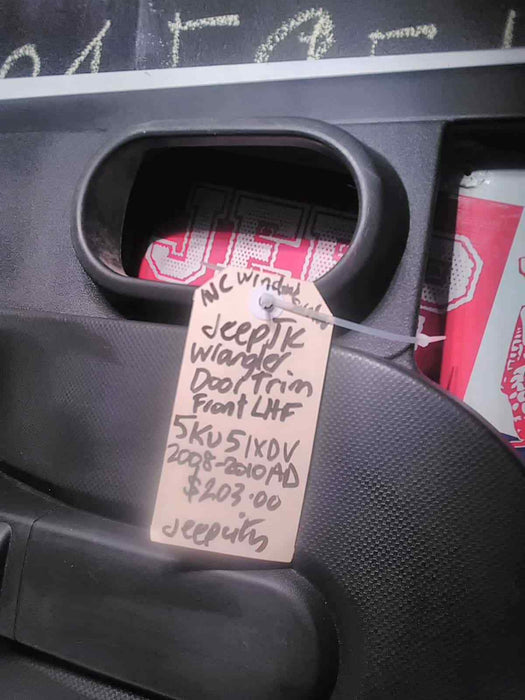 N/C Window
Jeep JK
Wrangler
Door Trim
Front LHF
5KU51XDV
2008-2010AD
$203.00
Jeepcity
JEEP